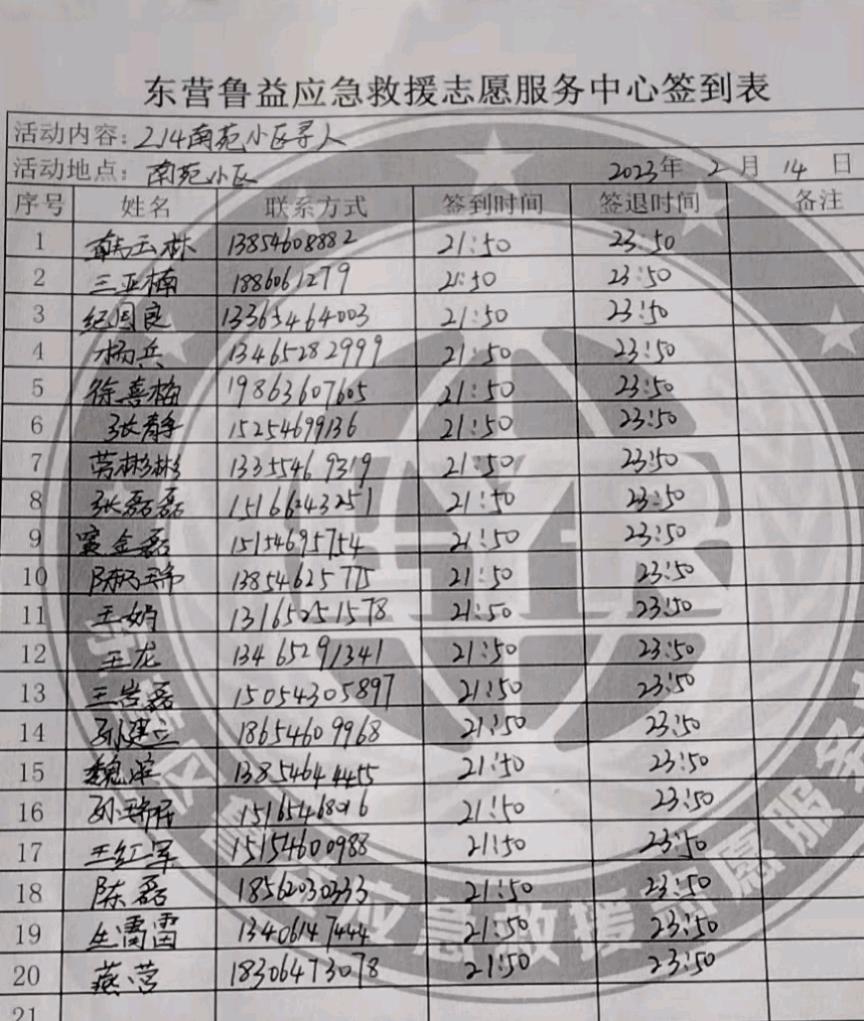 东营鲁益应急救援志愿服务中心签到表
活动内容：214南苑小区寻人
活动地点：南苑小区 2023年 2 月 14 日
序号 姓名 联系方式 签到时间 签退时间 备注
1 韩玉林 13854608882 21:50 23:50
2 王亚楠 1886061279 21:50 23:50
3 纪周良 13365464003 21:50 23:50
4 杨兵 13465282999 21:50 23:50
5 徐喜梅 19863607605 21:50 23:50
6 张静 15254699136 21:50 23:50
7 劳彬彬 13355469319 21:50 23:50
8 张磊磊 15166243251 21:50 23:50
9 窦金磊 15154695754 21:50 23:50
10 陈瑞 13854625775 21:50 23:50
11 王娟 13165251578 21:50 23:50
12 王龙 13465291341 21:50 23:50
13 王岩磊 15054305897 21:50 23:50
14 孙建立 18654609968 21:50 23:50
15 魏滨 13854644455 21:50 23:50
16 孙瑞民 21:50 23:50
17 王红军 15154600988 21:50 23:50
18 陈磊 18562030333 21:50 23:50
19 生雷雷 13406147444 21:50 23:50
20 燕营 18306473078 21:50 23:50
21